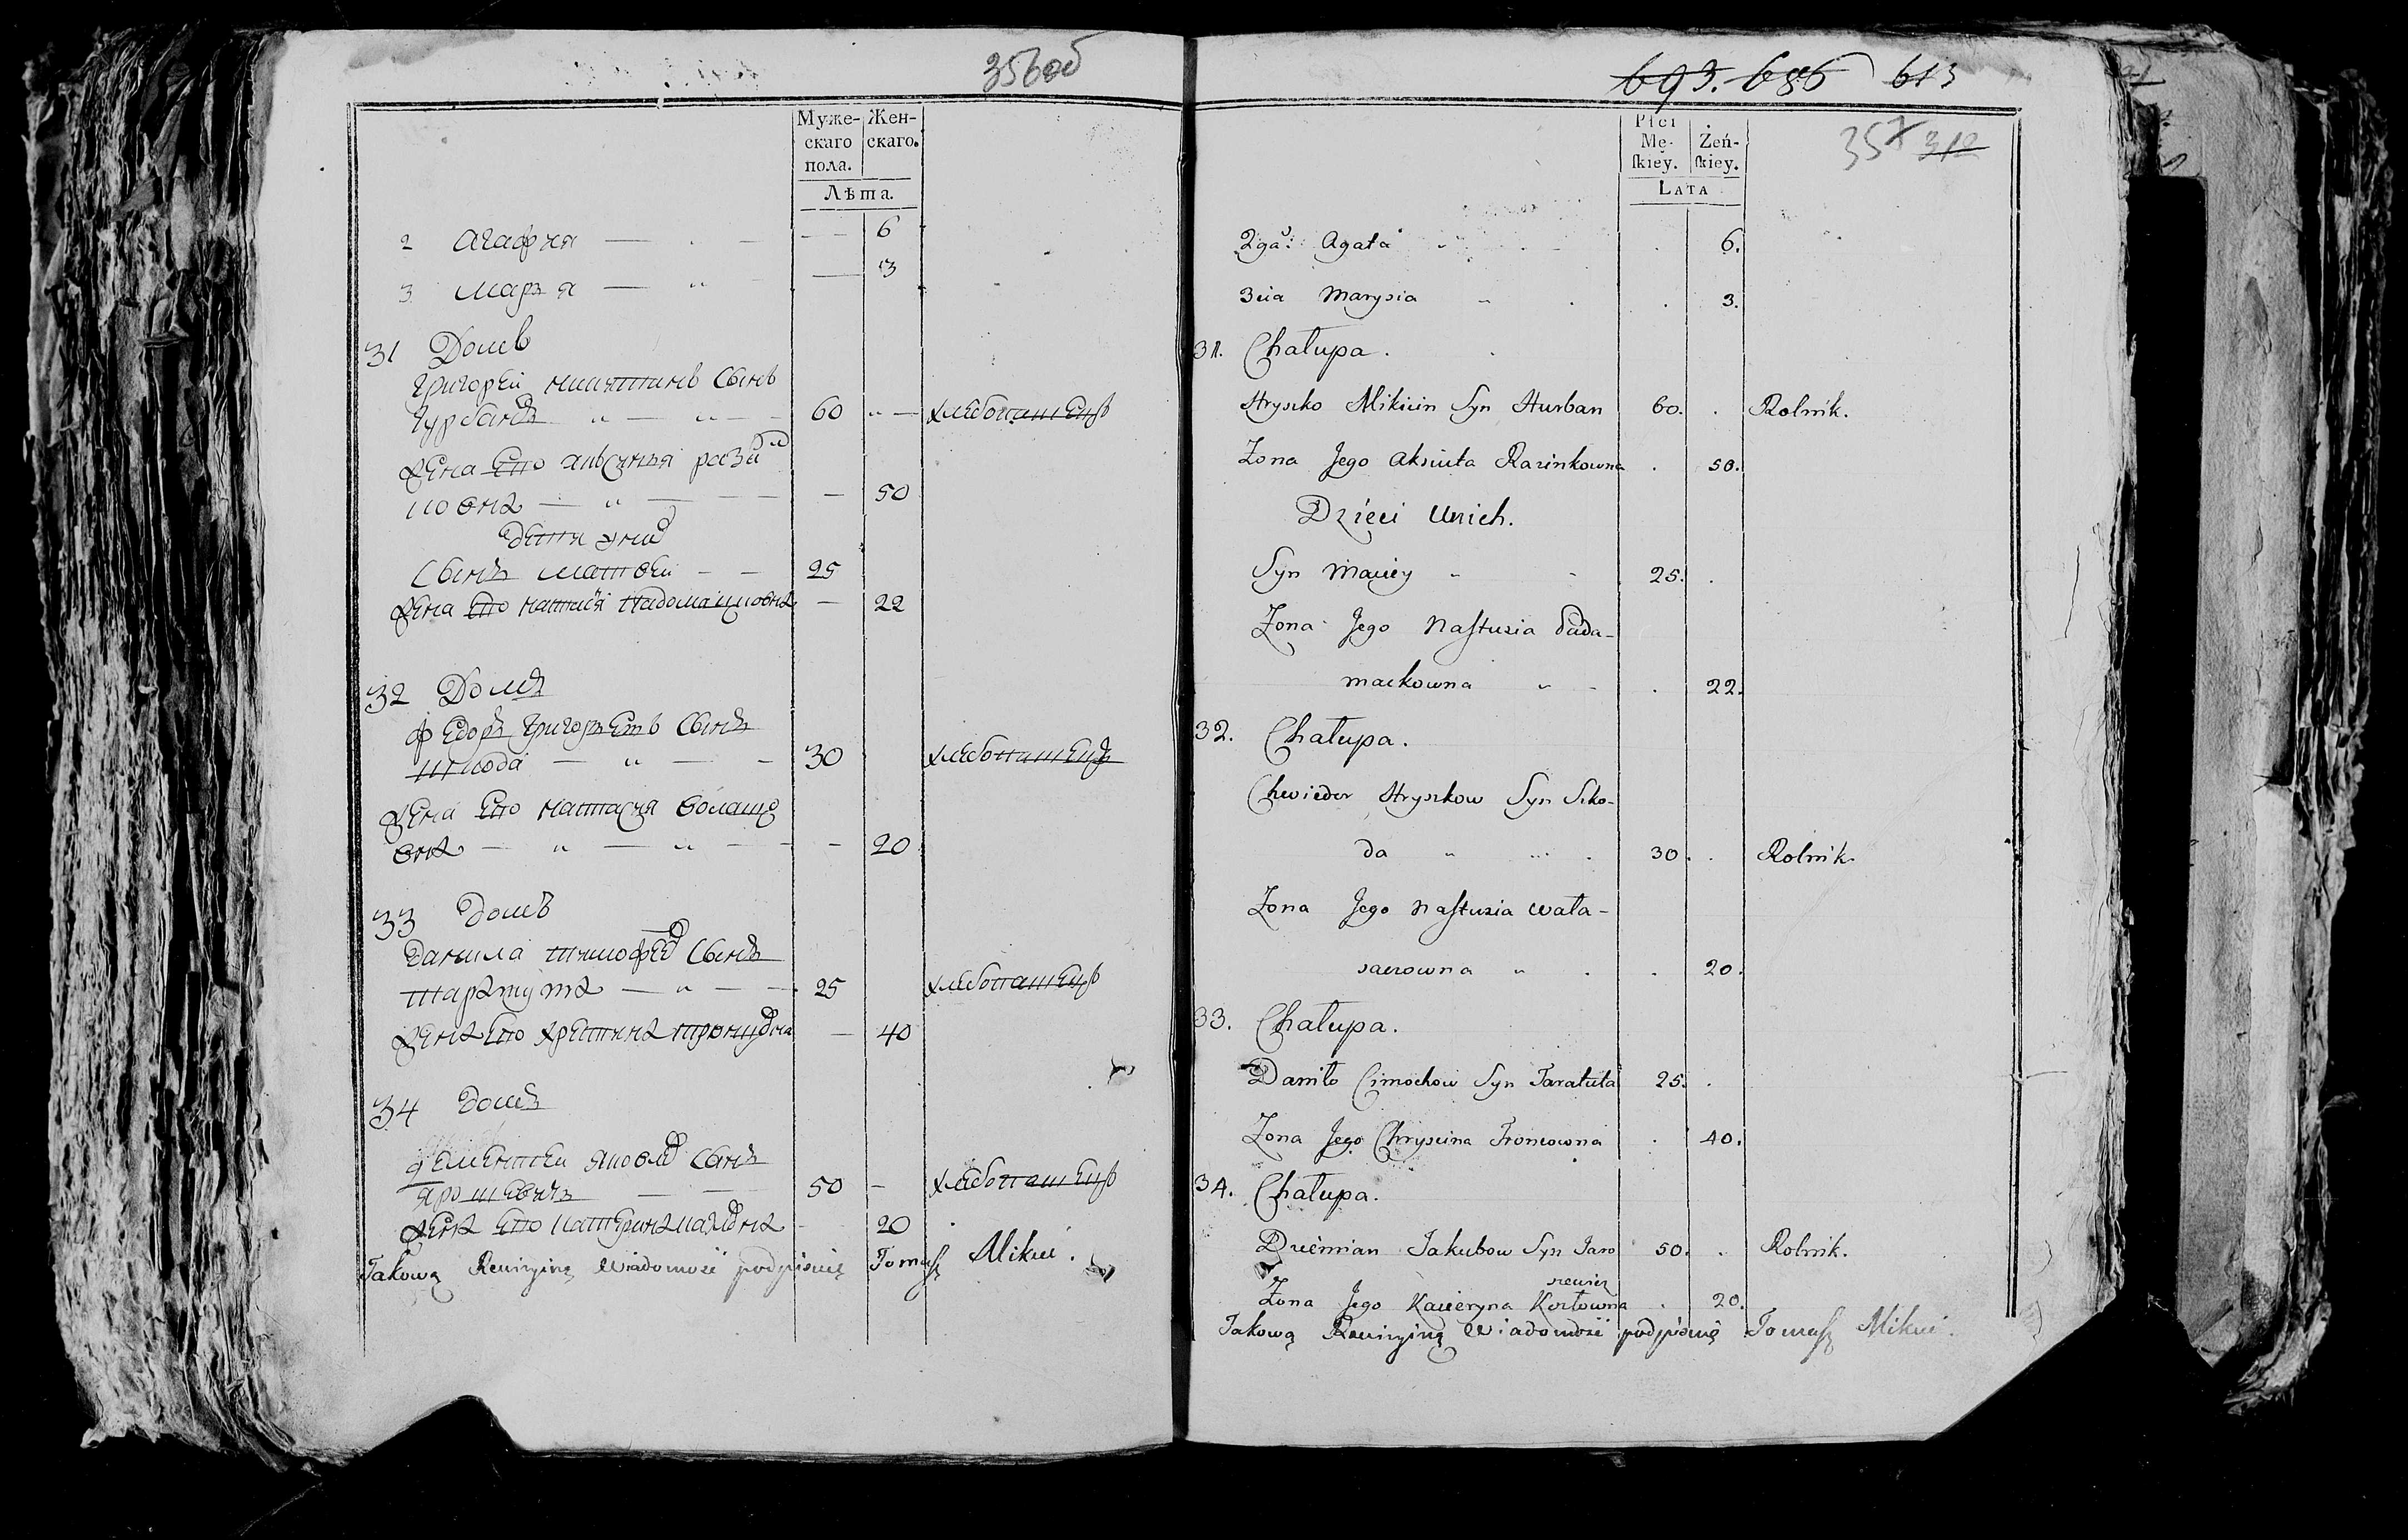 356об
Муже-
скаго
пола.
Жен-
скаго.
Лѣта.
2 Агафия 6
3 Марья 3
31 Домъ
Григорей Никитинъ Сынъ
Гурбанъ 60 хлебопашецъ
Жена Его
50
Сынъ Матвей 25
Жена Его 22
32 Домъ
Федоръ Григорьевъ Сынъ
Шкода 30 хлебопашецъ
Жена Его Настасия
20
33 Домъ
Данила Тимофеев Сынъ
Таратута 25 хлебопашецъ
Жена Его Христина 40
34 Домъ
Дементей Яковлев Сынъ
Ярошевичъ 50 хлебопашецъ
Жена Его Катерина 20
Takową Rewizyiną Wiadomość podpisuię Tomasz Mikuć.
693. 686 613
Płci
Mę-
ſkiey.
Żeń-
ſkiey.
357 312
LATA
2ga: Agata 6.
3cia Marysia 3.
31. Chałupa.
Hryszko Mikicin Syn Hurban 60. Rolnik.
Zona Jego Aksiuta Razinkowna 50.
Dzieci Unich.
Syn Maciey 25.
Zona Jego Naſtuzia Duda-
mackowna 22.
32. Chałupa.
Chwiedor Hryszkow Syn Szko-
da 30. Rolnik.
Zona Jego Naſtuzia Wała-
sacrowna 20.
33. Chałupa.
Daniło Cimochow Syn Taratuta 25.
Zona Jego Chryscina Troncowna 40.
34. Chałupa.
Dziemian Jakubow Syn Jaro 50. Rolnik.
szewicz
Zona Jego Kacieryna Kozłowna 20.
Takową Rewizyiną Wiadomość podpisuię Tomasz Mikuć.